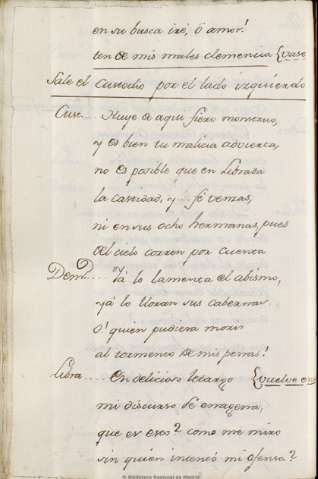 en su busca iré, ó amor!
ten de mis males clemencia {vase
Sale el Custodio por el lado izquierdo
Cust... Huye de aqui fiero monstruo,
y es bien tu malicia advierta,
no es posible que en Librada
la castidad, y fé venzas,
ni en sus ocho hermanas, pues
del cielo corren por cuenta
Dem... Ya lo lamenta el abismo,
ya lo lloran sus cabernas
O! quien pudiera morir
al tormento de mis penas!
Libra.... En delicioso letargo {vuelve en
mi discurso se enagena,
que es esto? como me miro
sin quien intentó mi ofensa?
© Biblioteca Nacional de Madrid